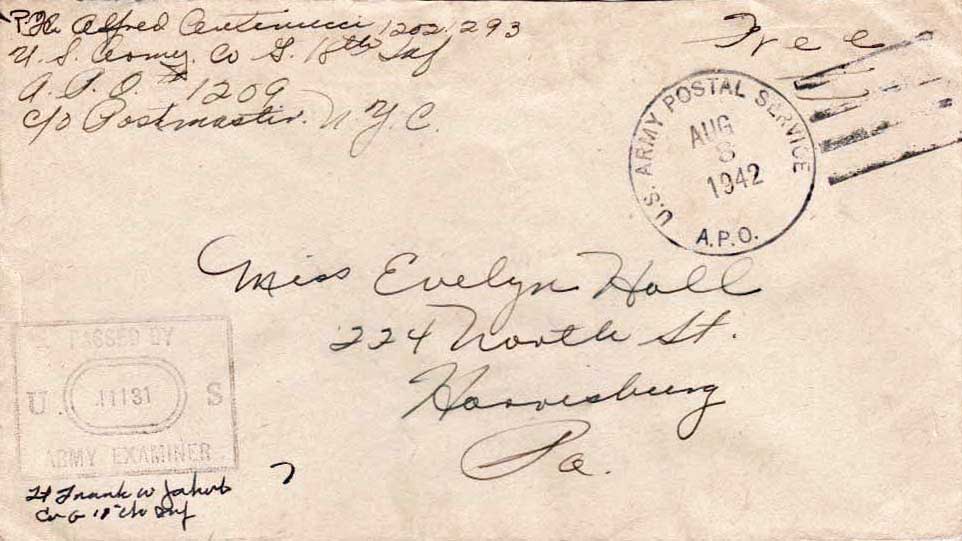 Pfc Alfred Centinucci 12021293
U. S. Army. Co G. 18th Inf
A. P. O. # 1209
c/o Postmaster. N. Y. C.
Free
U.S. ARMY POSTAL SERVICE
AUG
8
1942
A.P.O.
Miss Evelyn Hall
224 North St.
Harrisburg
Pa.
PASSED BY
U. 11131 S
ARMY EXAMINER
Lt Frank W
Co G 18th Inf